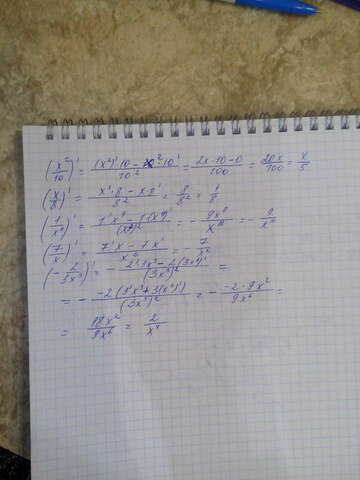 (x²/10)' = ((x²)'·10 − x²·10')/10² = (2x·10−0)/100 = 20x/100 = x/5
(x/8)' = (x'·8 − x·8')/8² = 8/8² = 1/8
(1/x⁹)' = (1'·x⁹ − 1·(x⁹)')/(x⁹)² = − 9x⁸/x¹⁸ = − 9/x¹⁰
(7/x)' = (7'x − 7x')/x² = − 7/x²
(− 2/3x³)' = − (2'·3x³ − 2·(3x³)')/(3x³)² =
= − −2(3'x³+3(x³)')/(3x³)² = − −2·9x²/9x⁶ =
= 18x²/9x⁶ = 2/x⁴